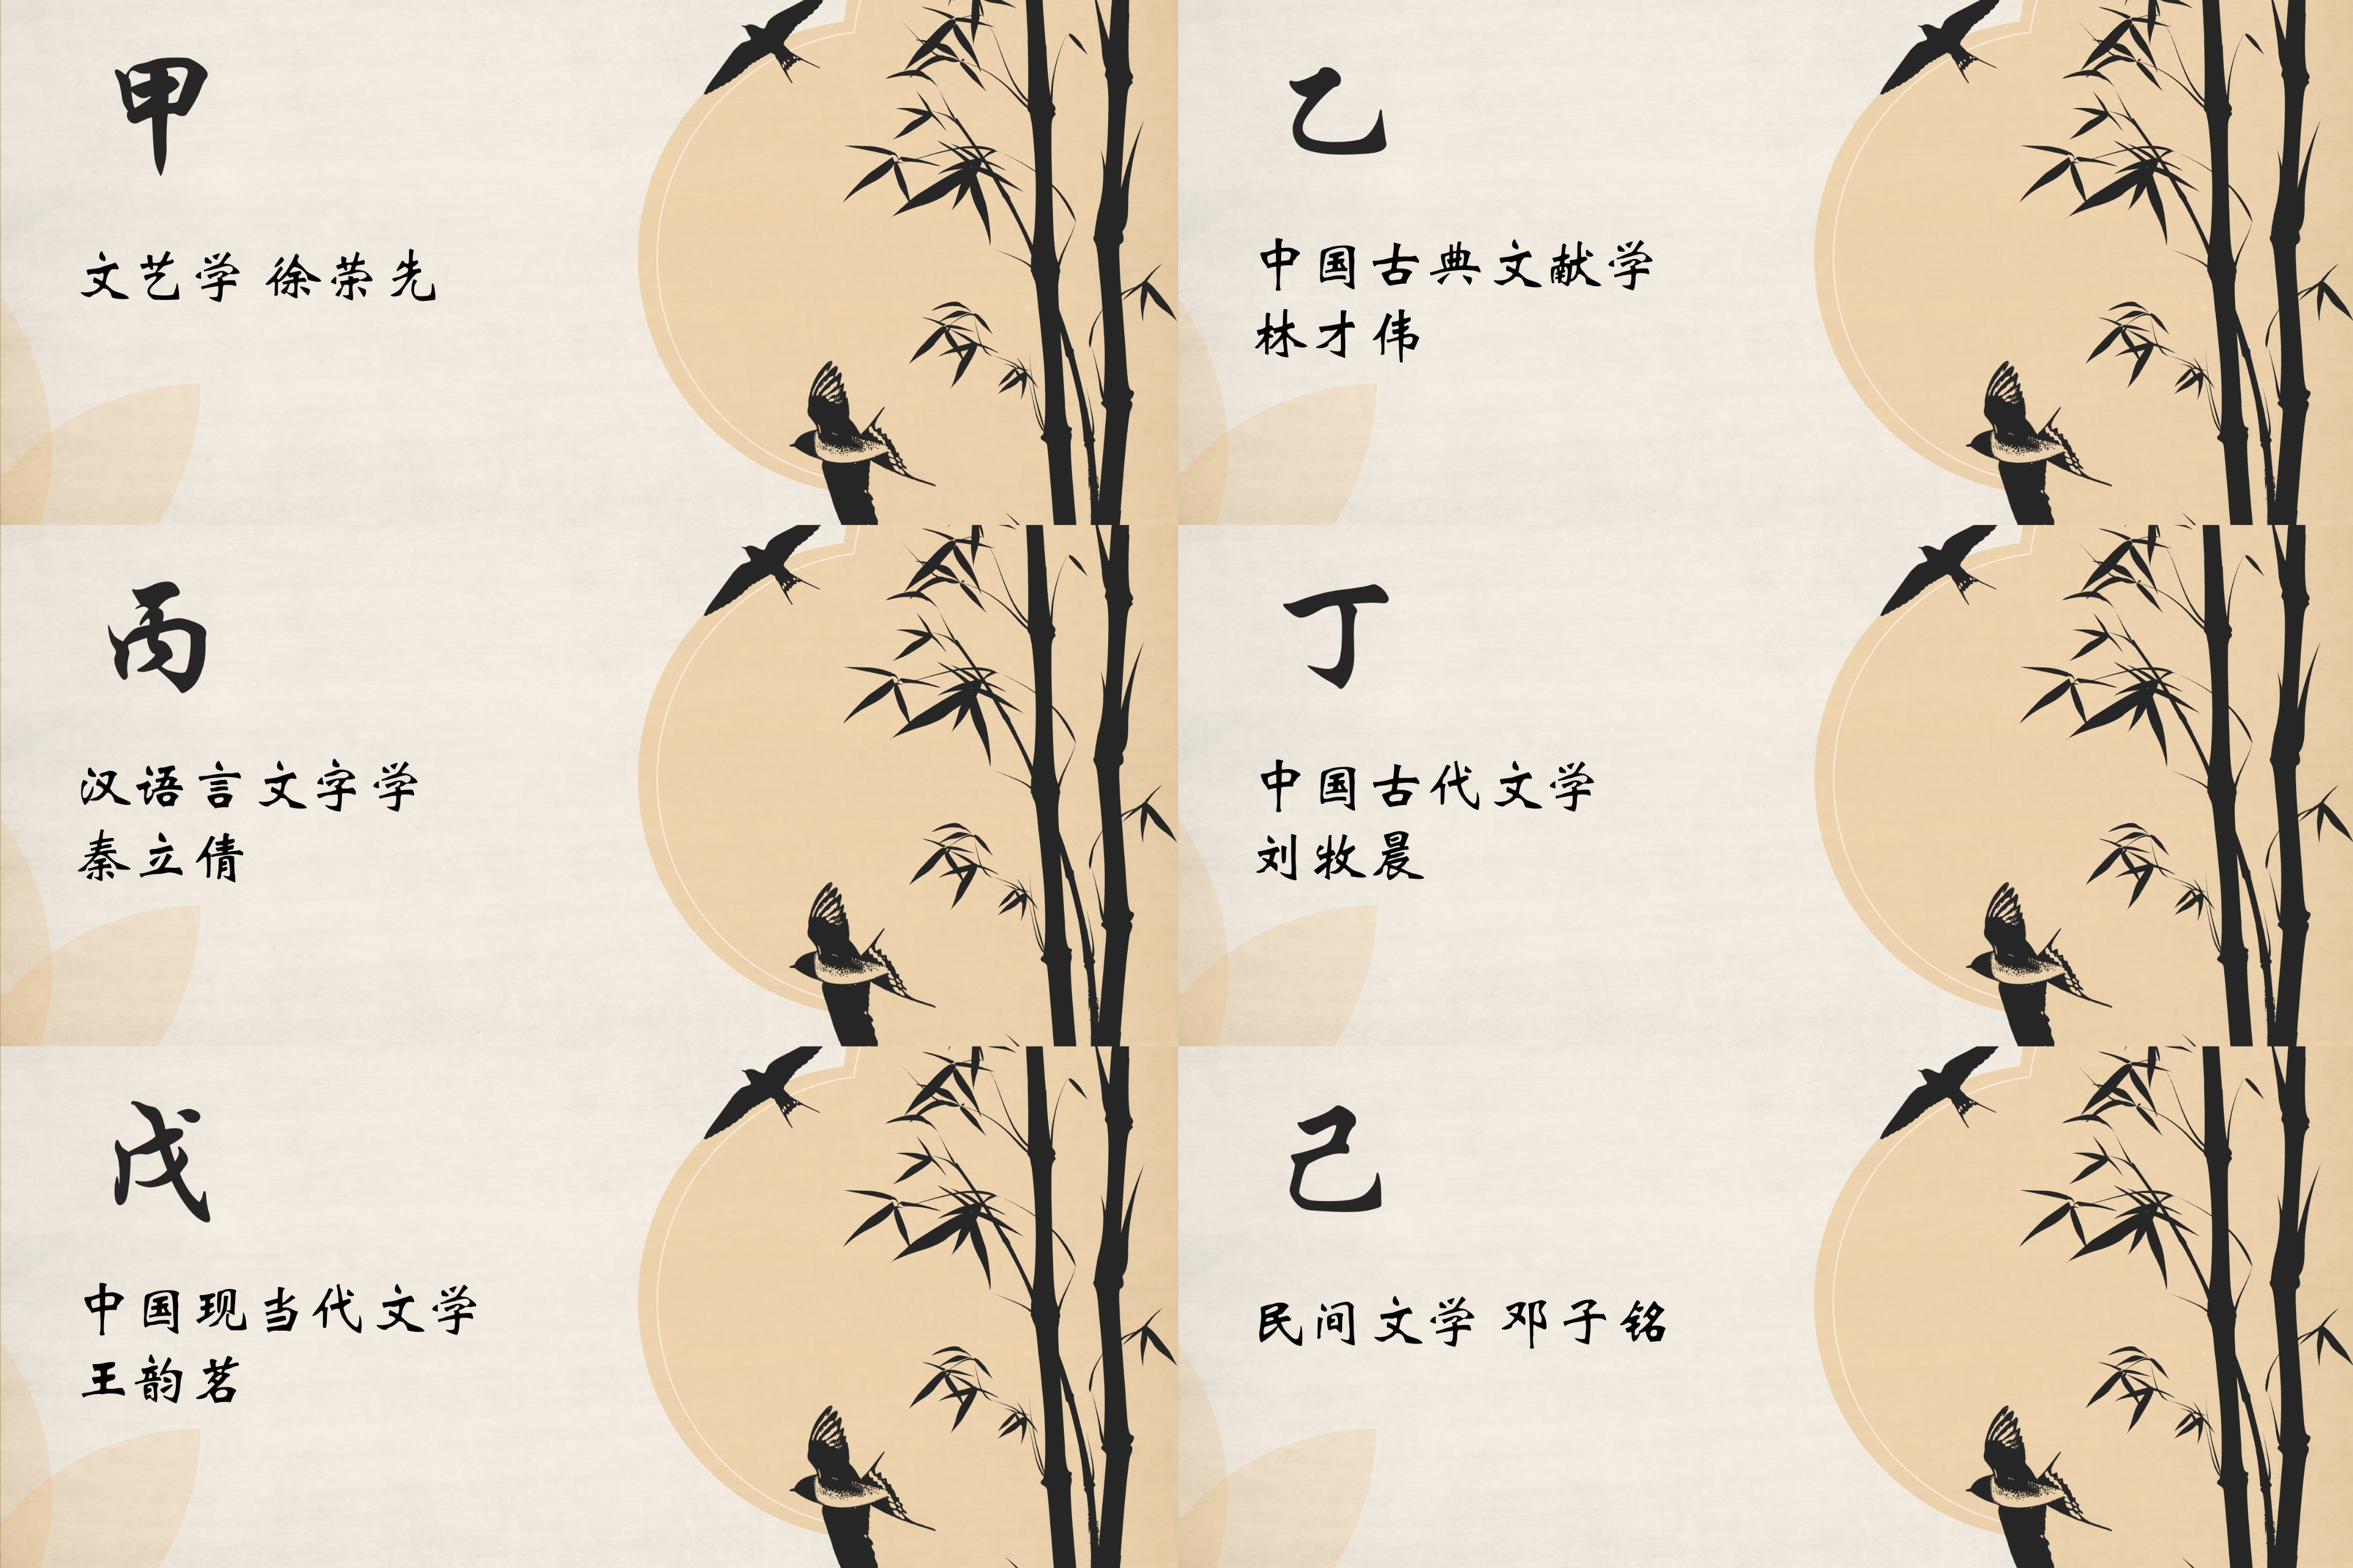 甲
文艺学 徐荣先
乙
中国古典文献学
林才伟
丙
汉语言文字学
秦立倩
丁
中国古代文学
刘牧晨
戊
中国现当代文学
王韵茗
己
民间文学 邓子铭